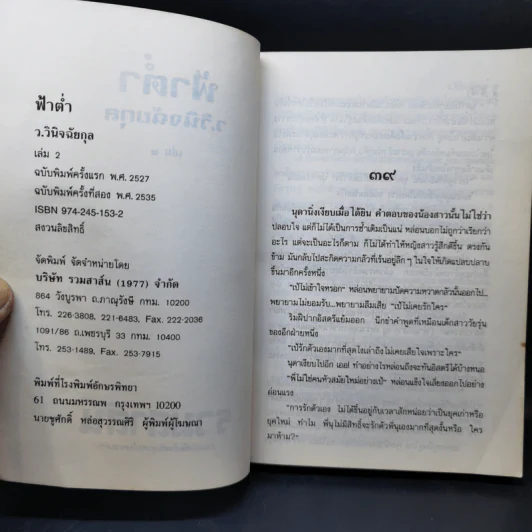 ฟ้าต่ำ
ว.วินิจฉัยกุล
เล่ม 2
ฉบับพิมพ์ครั้งแรก พ.ศ. 2527
ฉบับพิมพ์ครั้งที่สอง พ.ศ. 2535
ISBN 974-245-153-2
สงวนลิขสิทธิ์
จัดพิมพ์ จัดจำหน่ายโดย
บริษัท รวมสาส์น (1977) จำกัด
864 วังบูรพา ถ.ภาณุรังษี กทม. 10200
โทร. 226-3808, 221-6483, Fax. 222-2036
1091/86 ถ.เพชรบุรี 33 กทม. 10400
โทร. 253-1489, Fax. 253-7915
พิมพ์ที่โรงพิมพ์อักษรพิทยา
61 ถนนมหรรณพ กรุงเทพฯ 10200
นายชูศักดิ์ หล่อสุวรรณศิริ ผู้พิมพ์ผู้โฆษณา
๓๙
นุดานิ่งเงียบเมื่อได้ยิน คำตอบของน้องสาวนั้นไม่ใช่ว่า
ปลอบใจ แต่ก็ไม่ได้เป็นการซ้ำเติมเป็นแน่ หล่อนบอกไม่ถูกว่าเรียกว่า
อะไร แต่จะเป็นอะไรก็ตาม ก็ไม่ได้ทำให้หญิงสาวรู้สึกดีขึ้น ตรงกัน
ข้าม มันกลับไปสะกิดความกลัวที่เร้นอยู่ลึกๆ ในใจให้เกิดแปลบปลาบ
ขึ้นมาอีกครั้งหนึ่ง
“เป้ไม่เข้าใจหรอก” หล่อนพยายามปัดความหวาดกลัวนั้นออกไป...
พยายามไม่ยอมรับ...พยายามลืมเสีย “เป้ไม่เคยรักใคร”
ริมฝีปากอิสตรีแย้มออก นึกขำคำพูดที่เหมือนเด็กสาววัยรุ่น
ของอีกฝ่ายหนึ่ง
“เป้รักตัวเองมากที่สุดไงเล่าถึงไม่เคยเสียใจเพราะใคร”
นุดาเงียบไปอีก เออ! ทำอย่างไรหล่อนถึงจะทันอิสตรีได้บ้างหนอ
“พี่ไม่ใช่คนหัวสมัยใหม่อย่างเป้” หล่อนแข็งใจเลี่ยงออกไปอย่าง
อ่อนแรง
“การรักตัวเอง ไม่ได้ขึ้นอยู่กับเวลาสักหน่อยว่าเป็นยุคเก่าหรือ
ยุคใหม่ ทำไม พี่นุไม่มีสิทธิ์จะรักตัวพี่นุเองมากที่สุดงั้นหรือ ใคร
มาห้าม?”